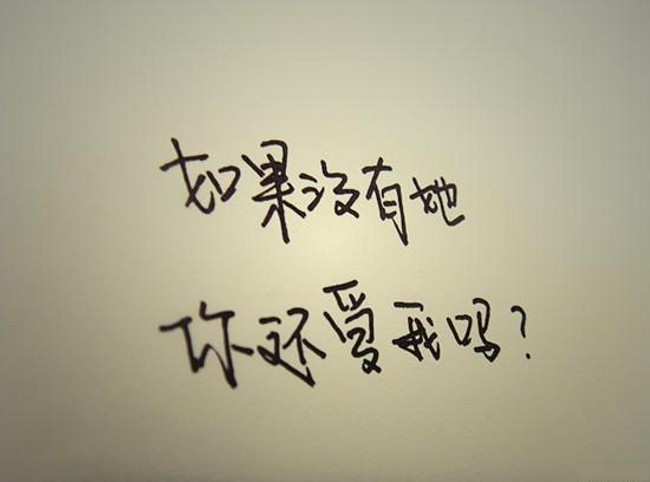 如果没有她
你还爱我吗?